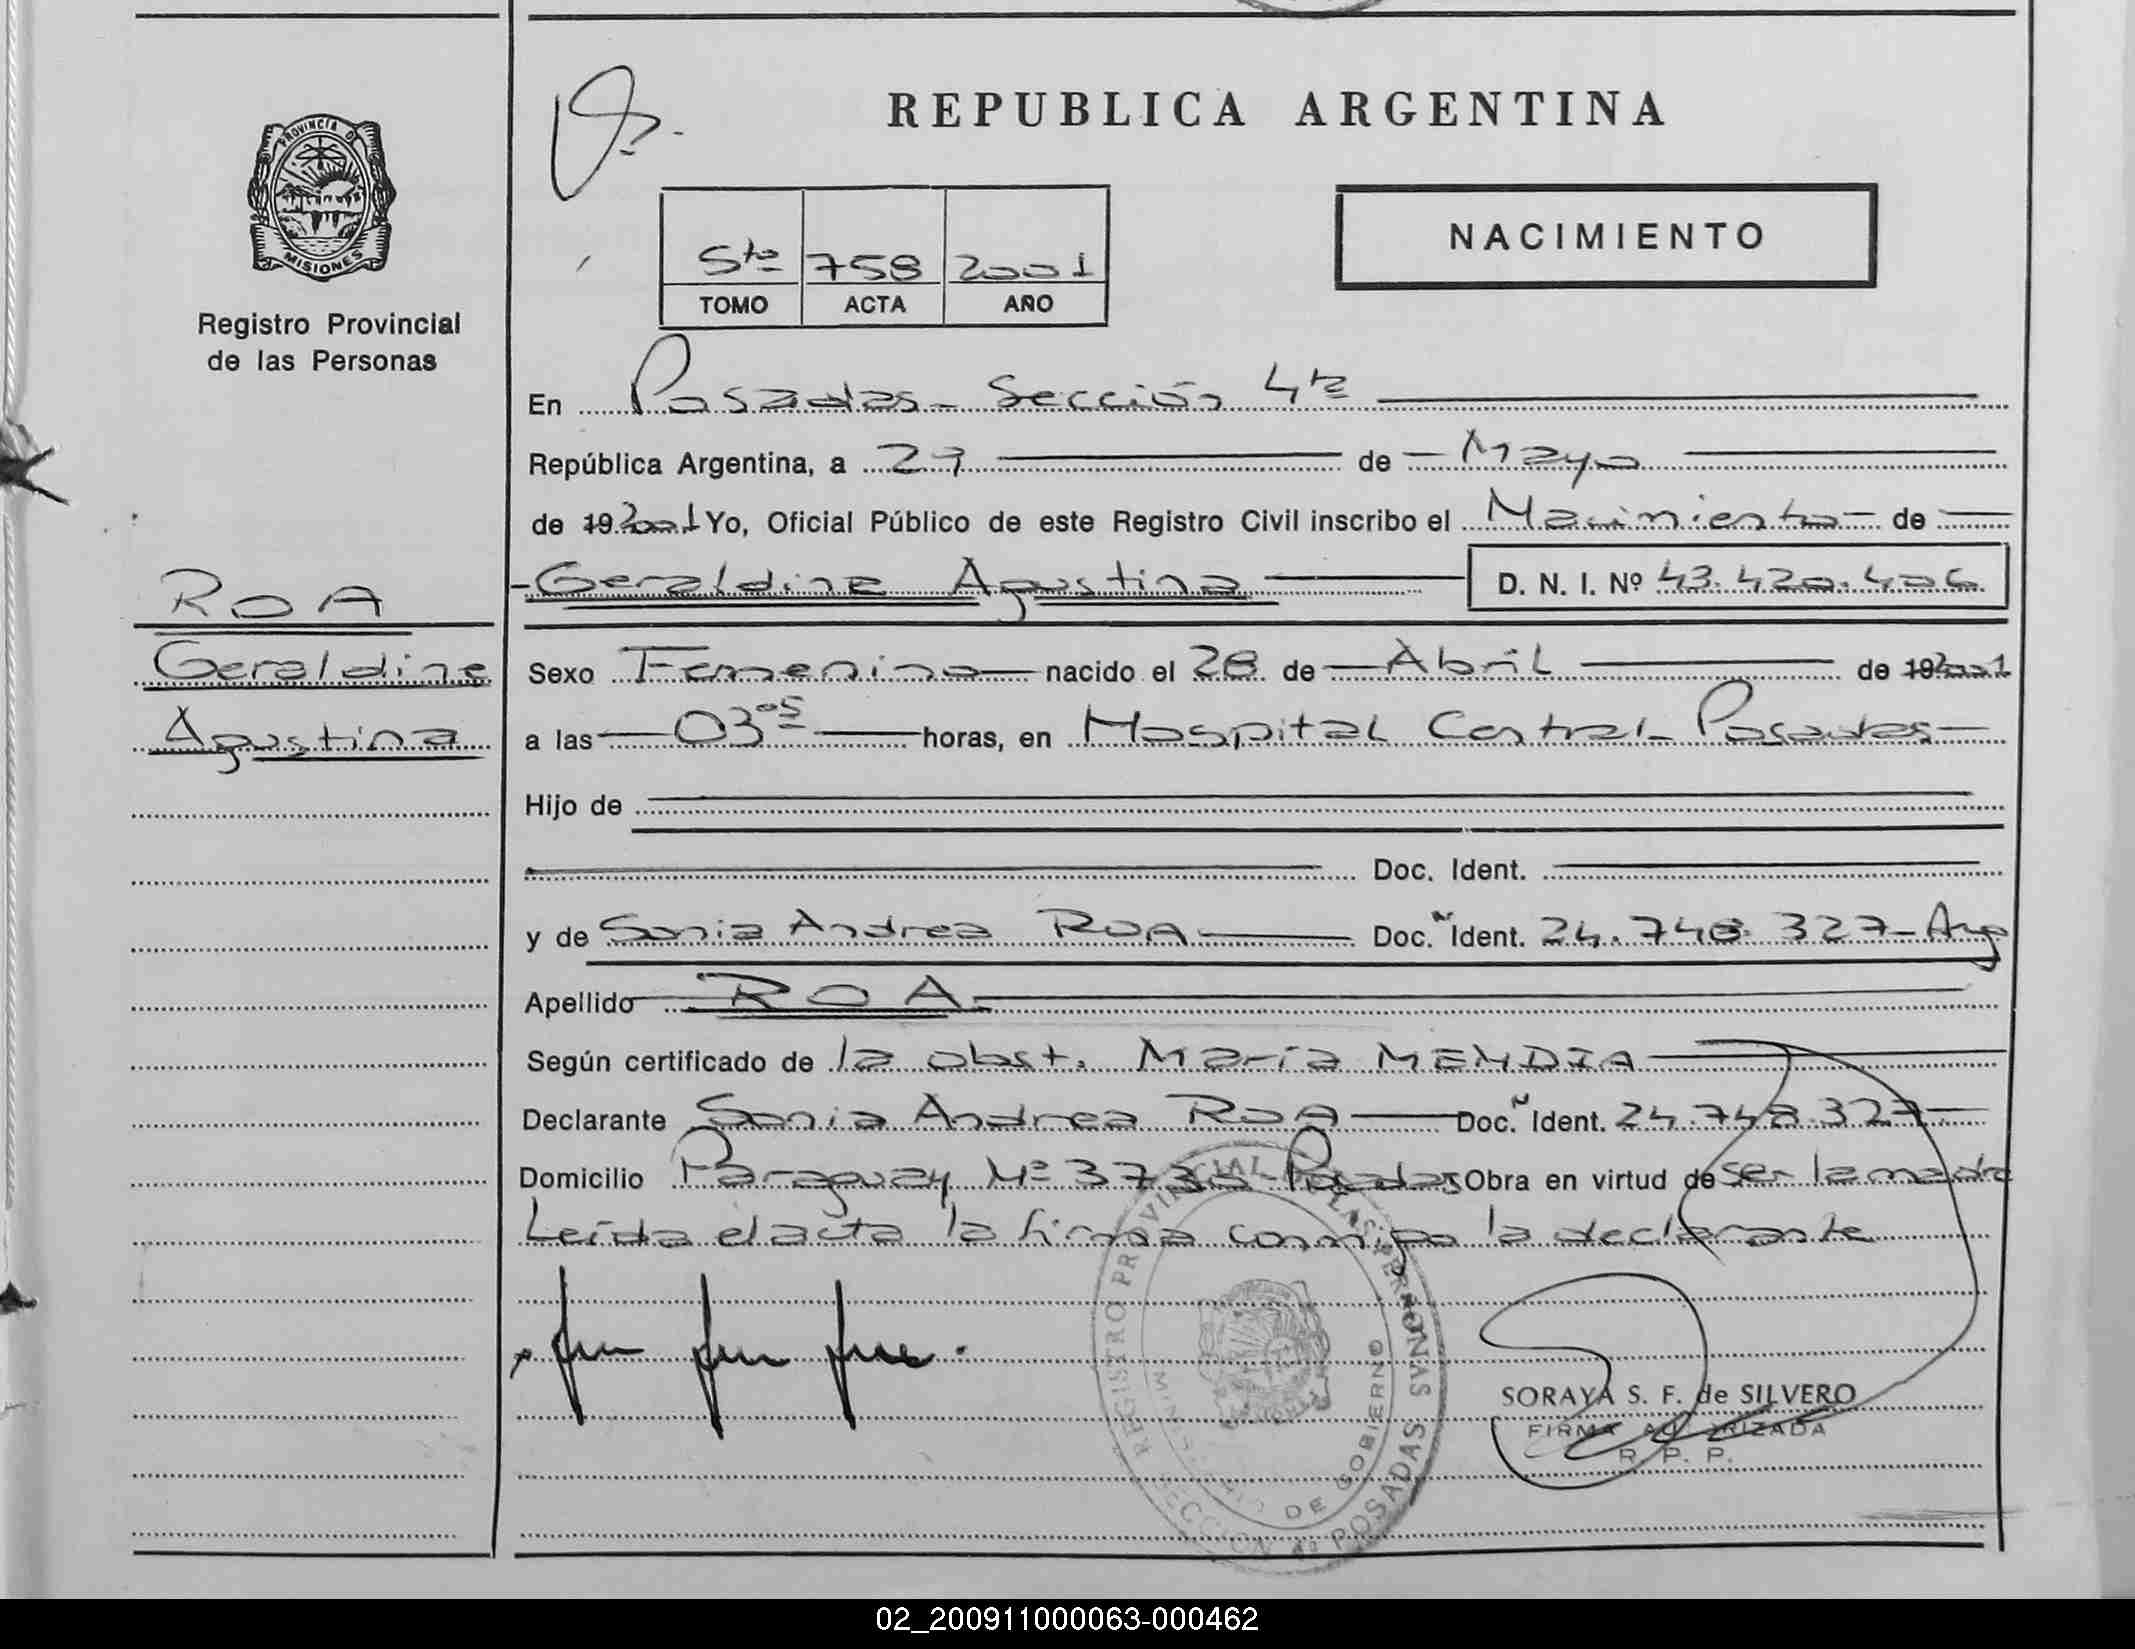 REPUBLICA ARGENTINA
PROVINCIA DE
MISIONES
Registro Provincial
de las Personas
5to 758 2001
TOMO ACTA AÑO
NACIMIENTO
En Posadas - Sección 4ta
República Argentina, a 29 de Mayo
de 19 2001 Yo, Oficial Público de este Registro Civil inscribo el Nacimiento de
Geraldine Agustina D. N. I. Nº 43.420.406
ROA
Geraldine
Agustina
Sexo Femenino nacido el 28 de Abril de 19 2001
a las 03 05 horas, en Hospital Central - Posadas
Hijo de
Doc. Ident.
y de Sonia Andrea ROA Doc. Ident. 24.748.327 - Arg
Apellido ROA
Según certificado de la obst. María MENDIA
Declarante Sonia Andrea ROA Doc. Ident. 24.748.327
Domicilio Paraguay Nº Posadas Obra en virtud de ser la madre
Leída el acta la firma conmigo la declarante
REGISTRO PROVINCIAL DE LAS PERSONAS
DE GOBIERNO
SECCION 4a POSADAS
SORAYA S. F. de SILVERO
FIRMA AUTORIZADA
R. P. P.
02_200911000063-000462